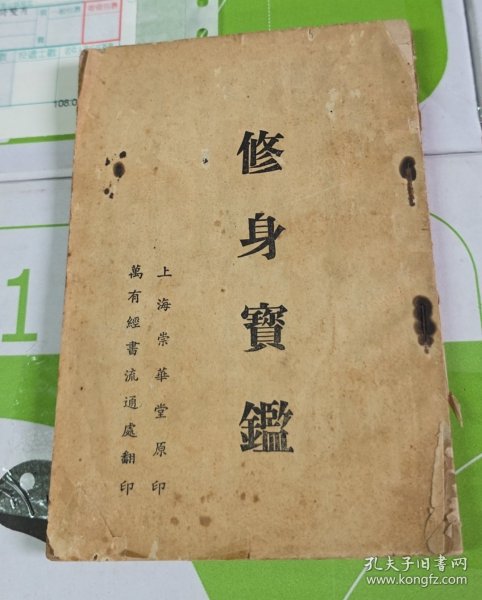 修身寳鑑
上海崇華堂原印
萬有經書流通處翻印
1
孔夫子旧书网
www.kongfz.com